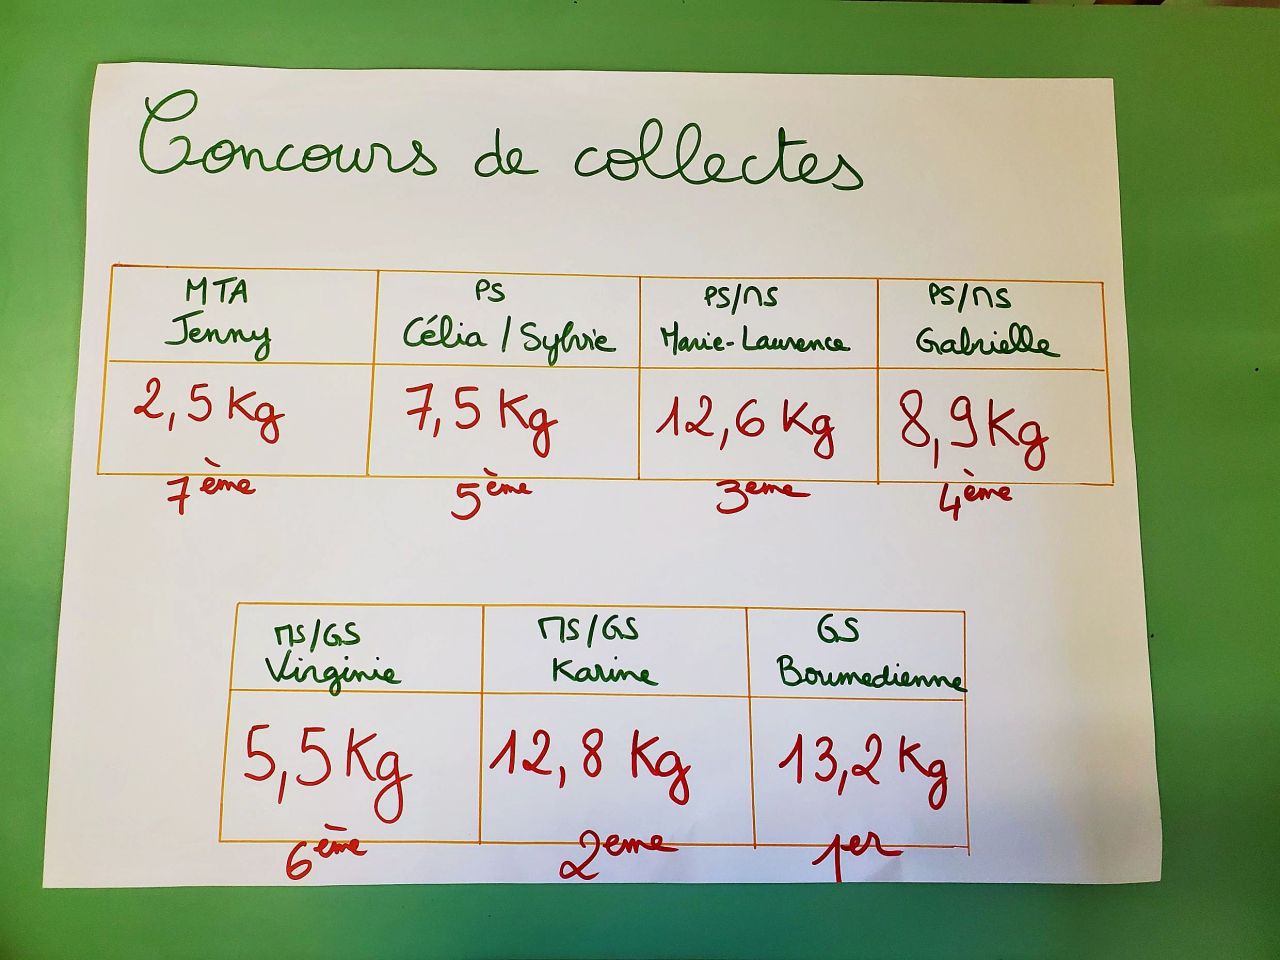 Concours de collectes
MTA
Jenny
2,5 Kg
7ème
PS
Célia / Sylvie
7,5 Kg
5ème
PS/MS
Marie-Laurence
12,6 Kg
3eme
PS/MS
Gabrielle
8,9 Kg
4ème
MS/GS
Virginie
5,5 Kg
6ème
MS/GS
Karine
12,8 Kg
2eme
GS
Boumedienne
13,2 Kg
1er